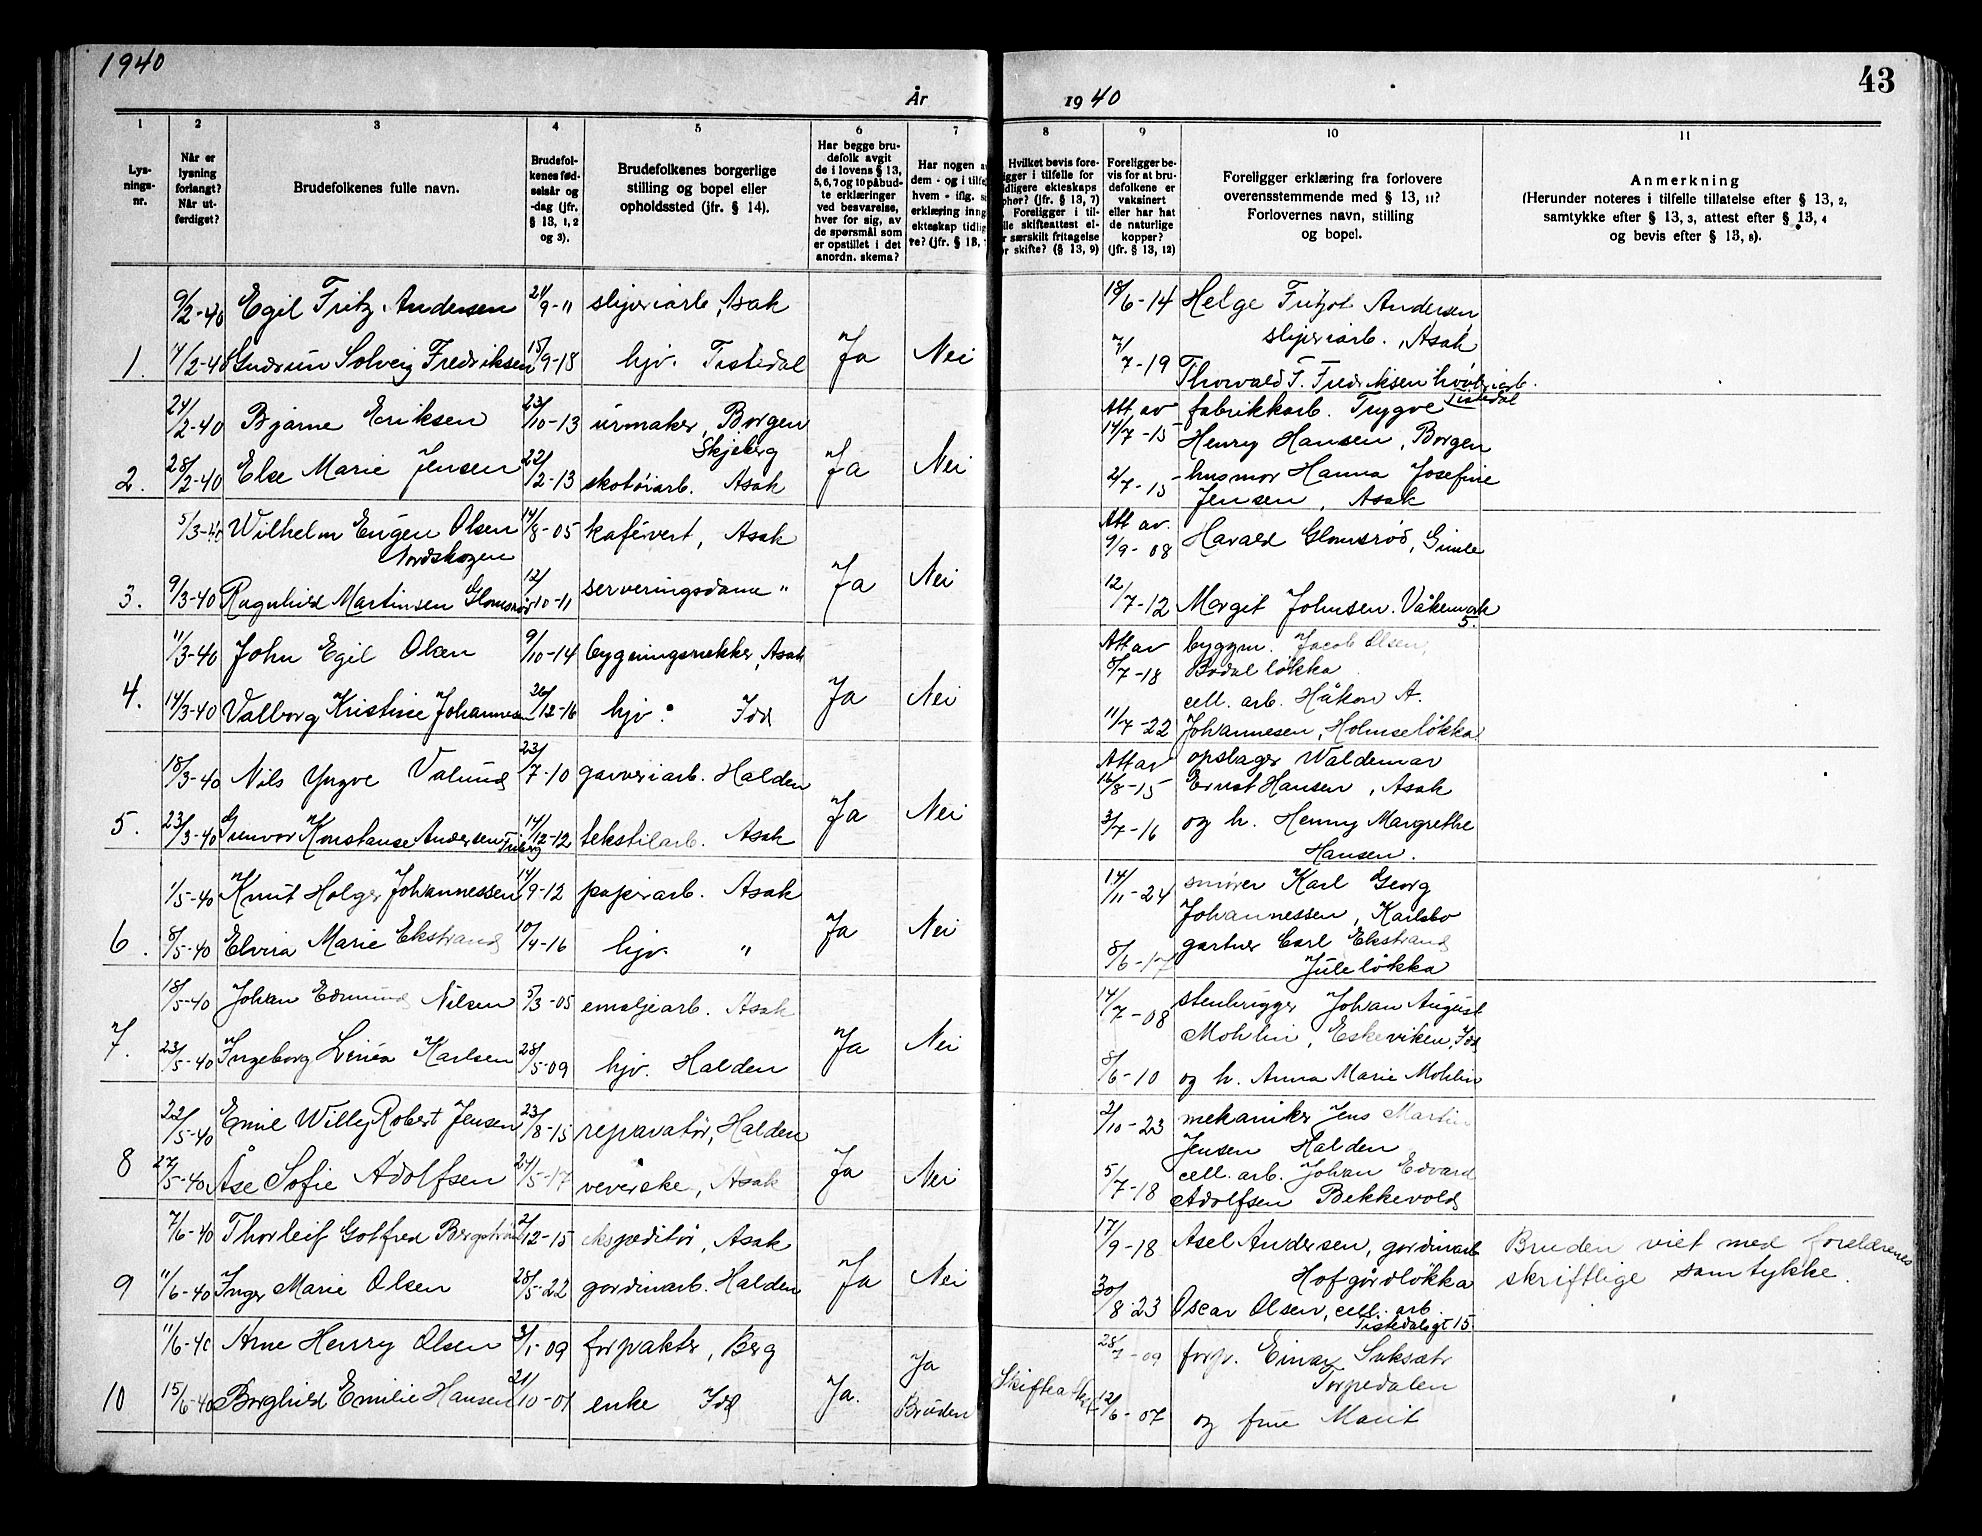 1940
År
1940
43
1
2
3
4
5
6
7
8
9
10
11
Lys-
nings-
nr.
Når er
lysning
forlangt?
Når ut-
ferdiget?
Brudefolkenes fulle navn.
Brudefol-
kenes fød-
selsår og
-dag (jfr.
§ 13, 1, 2
og 3).
Brudefolkenes borgerlige
stilling og bopel eller
opholdssted (jfr. § 14).
Har begge bru-
defolk avgit
de i lovens § 13,
5, 6, 7 og 10 påbud-
te erklæringer
ved besvarelse,
hver for sig, av
de spørsmål som
er opstillet i det
anordn. skema?
Har nogen
dem - og i tilfe
hvem - iflg.
erklæring inng
ekteskap tidlig
te? (jfr. § 13,
Hvilket bevis fore-
igger i tilfelle for
idligere ekteskaps
phør? (jfr. § 13, 7)
Foreligger i til-
lle skifteattest el-
r særskilt fritagelse
or skifte? (§ 13, 9)
Foreligger be-
vis for at bru-
defolkene er
vaksinert
eller har hat
de naturlige
kopper?
(jfr. § 13, 12)
Foreligger erklæring fra forlovere
overensstemmende med § 13, 11?
Forlovernes navn, stilling
og bopel.
Anmerkning
(Herunder noteres i tilfelle tillatelse efter § 13, 2,
samtykke efter § 13, 3, attest efter § 13, 4
og bevis efter § 13, 8).
9/2-40 Egil Fritz Andersen 21/9-11 sliperiarb, Asak 18/6-14 Helge Fritjof Andersen
sliperiarb., Asak
1. 14/2-40 Gudrun Solveig Fredriksen 15/9-18 hjv. Tistedal Ja Nei 7/7-19
Thorvald T. Fredriksen
Tistedal
24/2-40 Bjarne Eriksen 23/10-13 urmaker, Borgen Att av fabrikkarb. Trygve
Skjeberg 14/7-15 Henry Hansen, Borgen
2. 28/2-40 Else Marie Jensen 22/2-13 skotøiarb. Asak Ja Nei 2/7-15 husmor Hanna Josefine
Jensen, Asak
5/3-40 Wilhelm Eugen Olsen 14/8-05 kafévert, Asak Att av.
Nordskogen 9/9-08 Harald Glomsrød, Gimle
3. 9/3-40 Ragnhild Martinsen Glomsrød 12/10-11 serveringsdame " Ja Nei 12/7-12 Margit Johnsen.
5.
11/3-40 John Egil Olsen 9/10-14 bygningssnekker, Asak Att av byggm. Jacob Olsen,
8/7-18 Bodal løkka
4. 14/3-40 Valborg Kristine Johannesen 26/12-16 hjv. Idd Ja Nei cell. arb. Håkon A.
11/7-22 Johannesen, Holmseløkka
18/3-40 Nils Yngve Valund 23/7-10 garveriarb. Halden Att av opslager Waldemar
16/8-15 Ernst Hansen, Asak
5. 23/3-40 Gunvor Konstanse Andersen 14/12-12 tekstilarb. Asak Ja Nei 3/7-16 og h. Henny Margrethe
Hansen.
1/5-40 Knut Holger Johannessen 14/9-12 papirarb. Asak 14/11-24 smører Karl Georg
Johannessen, Karlsbo
6. 8/5-40 Elvira Marie Ekstrand 10/4-16 hjv. " Ja Nei gartner Carl Ekstrand
8/6-17 Juleløkka
18/5-40 Johan Edmund Nilsen 5/3-05 emaljearb. Asak 14/7-08 stenhugger Johan August
Mohlin, Eskeviken, Idd
7. 23/5-40 Ingeborg Linéa Karlsen 28/5-09 hjv. Halden Ja Nei 8/6-10 og h. Anna Marie Mohlin
22/5-40 Emil Willy Robert Jensen 23/8-15 reparatør, Halden 2/10-23 mekaniker Jens Martin
Jensen Halden
8 27/5-40 Åse Sofie Adolfsen 24/5-17 veverske, Asak Ja Nei cell. arb. Johan Edvard
5/7-18 Adolfsen Bekkevold
7/6-40 Thorleif Gotfred Bergstrøm 2/12-15 ekspeditør, Asak 17/9-18 Asel Andersen, gardinarb Bruden viet med foreldrenes
Hofgårdløkka skriftlige samtykke.
9 11/6-40 Inger Marie Olsen 28/5-22 gardinarb. Halden Ja Nei 30/8-23 Oscar Olsen, cell. arb
Tistedalsgt 15.
11/6-40 Arne Henry Olsen 3/1-09 forpakter, Berg 28/7-09 forp. Einar
Torpedalen
10 15/6-40 Borghild Emilie Hansen 21/10-01 enke Idd Ja. Ja Bruden Skifteattest 12/6-07 og frue Marit